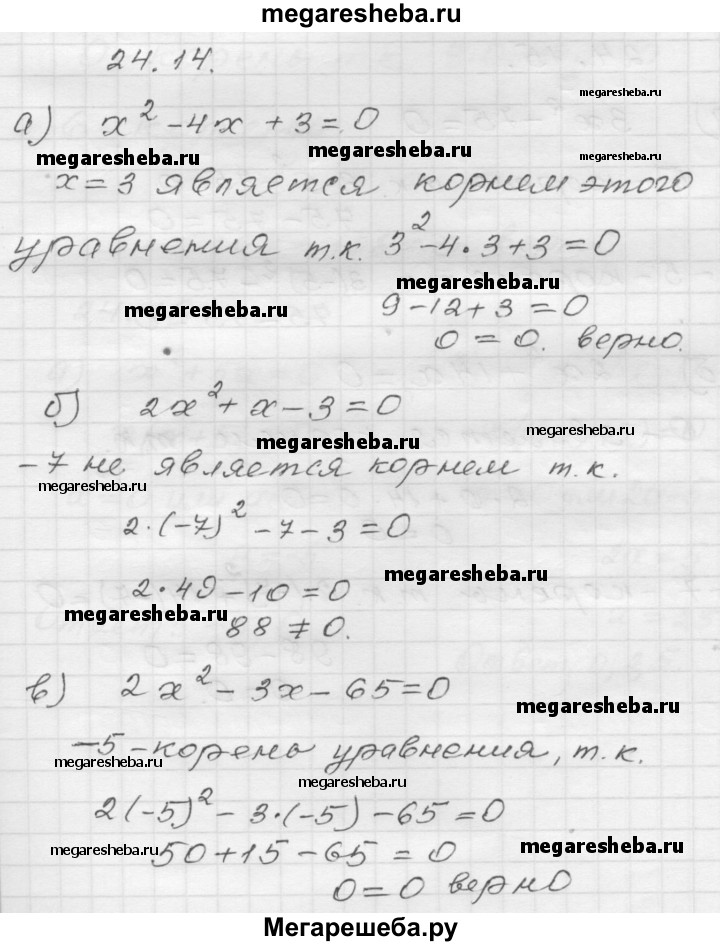 megaresheba.ru
24.14.
megaresheba.ru
а) x² - 4x + 3 = 0
megaresheba.ru
megaresheba.ru
megaresheba.ru
x = 3 является корнем этого
уравнения т.к. 3² - 4·3 + 3 = 0
megaresheba.ru
megaresheba.ru
9 - 12 + 3 = 0
0 = 0. верно.
б) 2x² + x - 3 = 0
megaresheba.ru
megaresheba.ru
-7 не является корнем т.к.
megaresheba.ru
2·(-7)² - 7 - 3 = 0
megaresheba.ru
2·49 - 10 = 0
megaresheba.ru
88 ≠ 0.
в) 2x² - 3x - 65 = 0
megaresheba.ru
-5 - корень уравнения, т.к.
megaresheba.ru
megaresheba.ru
2(-5)² - 3·(-5) - 65 = 0
megaresheba.ru
megaresheba.ru
50 + 15 - 65 = 0
0 = 0 верно
Мегарешеба.ру